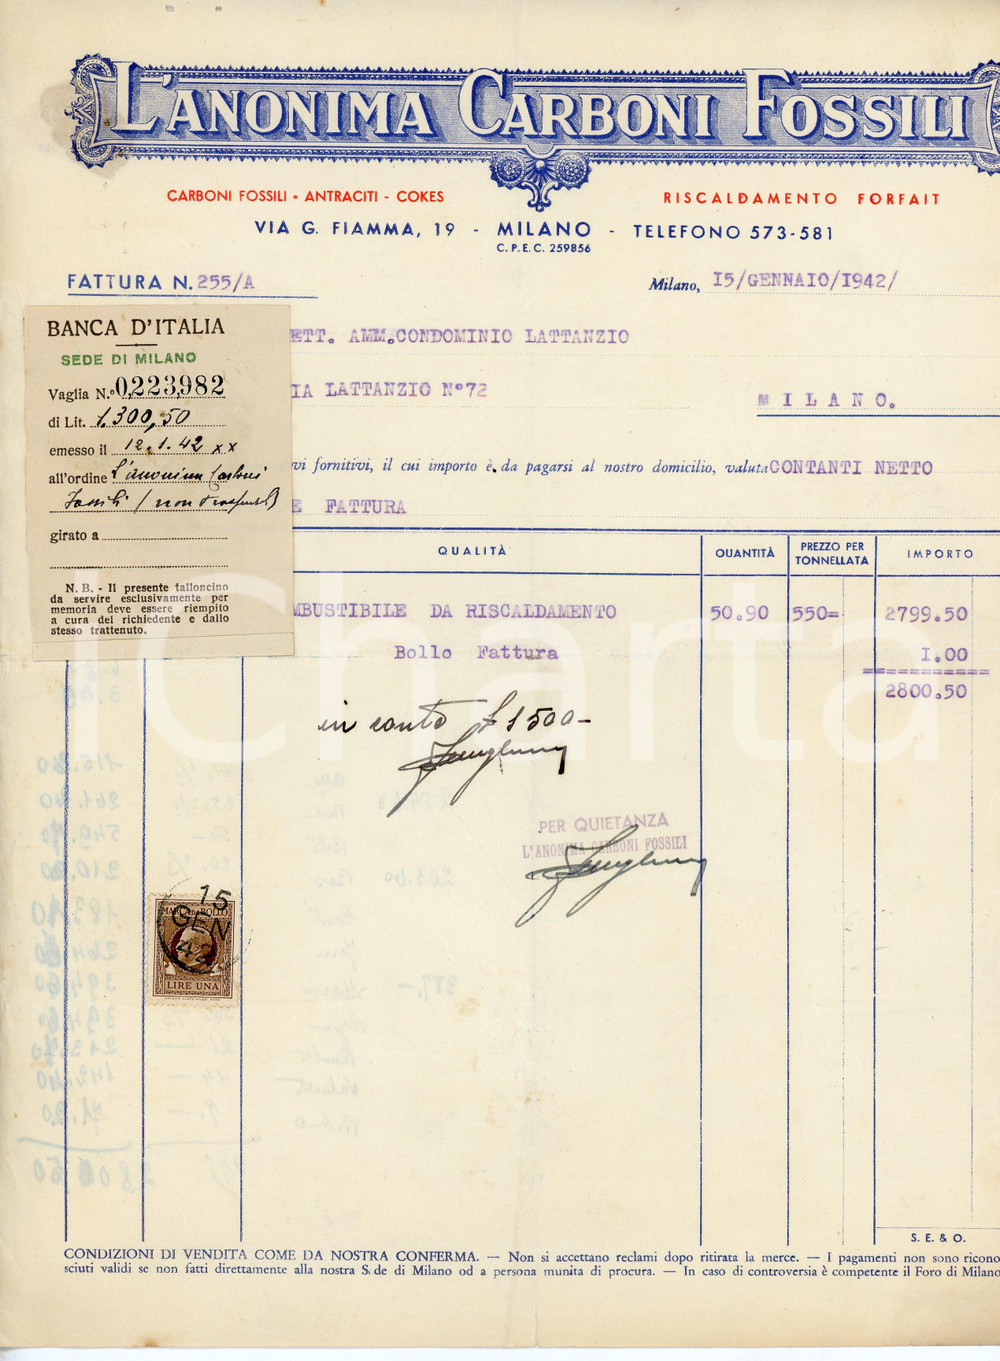 L'ANONIMA CARBONI FOSSILI
CARBONI FOSSILI - ANTRACITI - COKES
RISCALDAMENTO FORFAIT
VIA G. FIAMMA, 19 - MILANO - TELEFONO 573-581
C. P. E. C. 259856
FATTURA N. 255/A
Milano, 15/GENNAIO/1942/
BANCA D'ITALIA
SEDE DI MILANO
Vaglia N.º 0,223,982
di Lit. 1.300,50
emesso il 12.1.42 xx
all'ordine L'anonima Carboni
Fossili (non trasferib.)
girato a
N. B. - Il presente talloncino
da servire esclusivamente per
memoria deve essere riempito
a cura del richiedente e dallo
stesso trattenuto.
ETT. AMM.CONDOMINIO LATTANZIO
IA LATTANZIO Nº72
MILANO.
vi fornitivi, il cui importo è da pagarsi al nostro domicilio, valuta CONTANTI NETTO
E FATTURA
QUALITÀ QUANTITÀ PREZZO PER TONNELLATA IMPORTO
MBUSTIBILE DA RISCALDAMENTO 50.90 550= 2799.50
Bollo Fattura 1.00
2800.50
in conto £ 1500-
PER QUIETANZA
L'ANONIMA CARBONI FOSSILI
15
GEN
42
MARCA DA BOLLO
LIRE UNA
iCharta
S. E. & O.
CONDIZIONI DI VENDITA COME DA NOSTRA CONFERMA. — Non si accettano reclami dopo ritirata la merce. — I pagamenti non sono ricono
sciuti validi se non fatti direttamente alla nostra S.de di Milano od a persona munita di procura. — In caso di controversia è competente il Foro di Milano